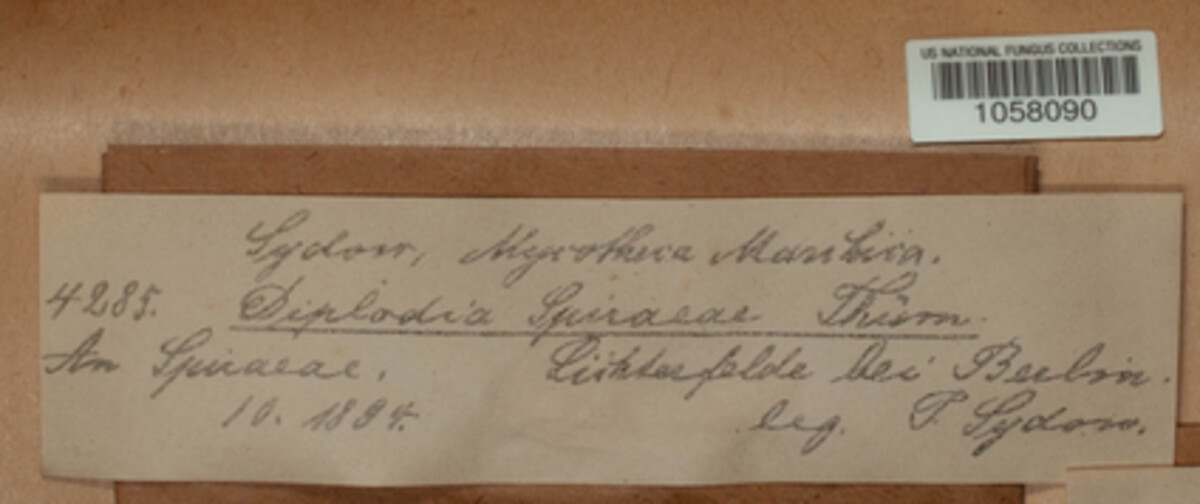 US NATIONAL FUNGUS COLLECTIONS
1058090
Sydow, Mycotheca Marchica.
4285. Diplodia Spiraeae Thüm.
An Spiraeae. Lichterfelde bei Berlin.
10. 1894. leg. P. Sydow.